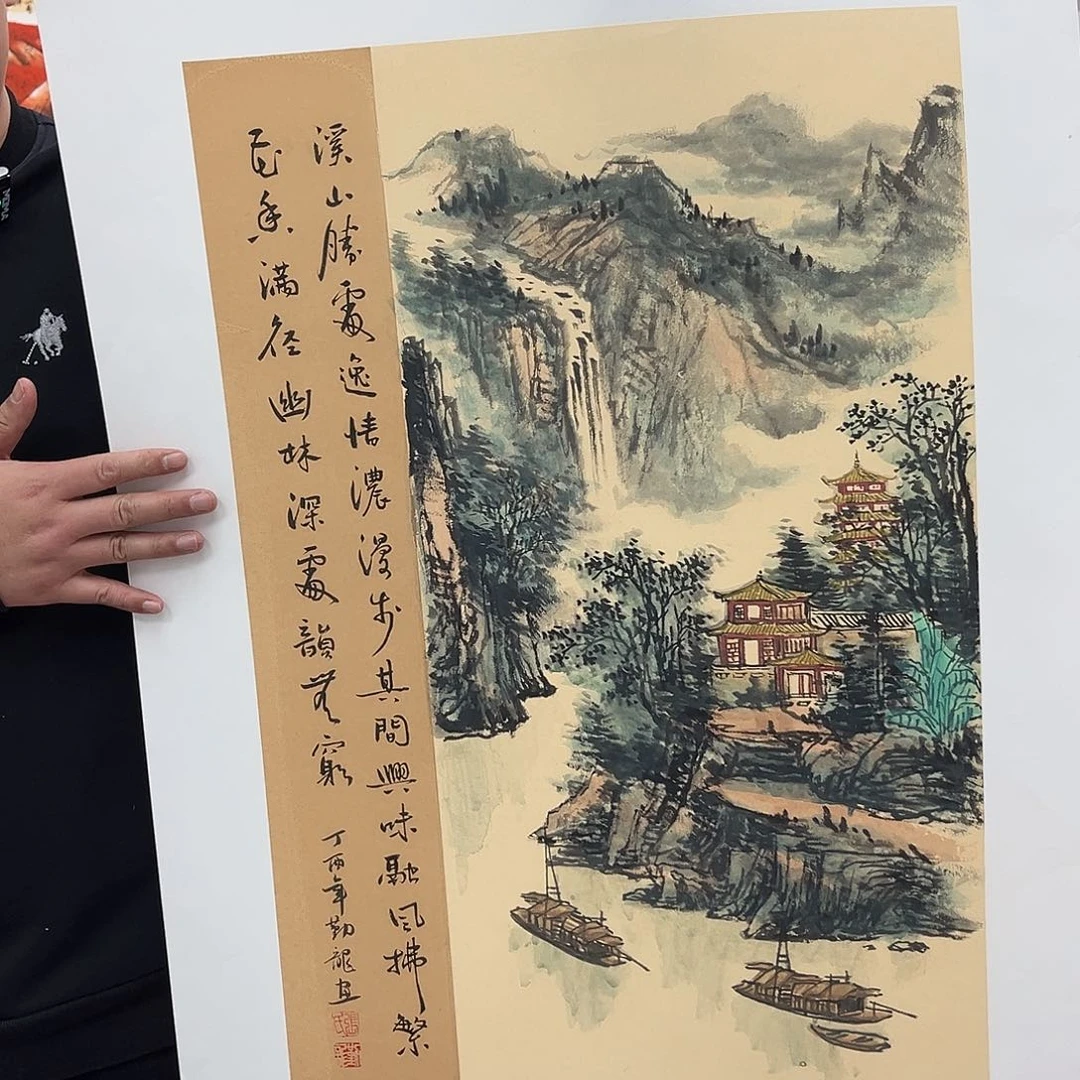 溪山勝處逸情濃漫步其間興味融風拂繁
花香满径幽林深處韻無窮
丁酉年勤龍画